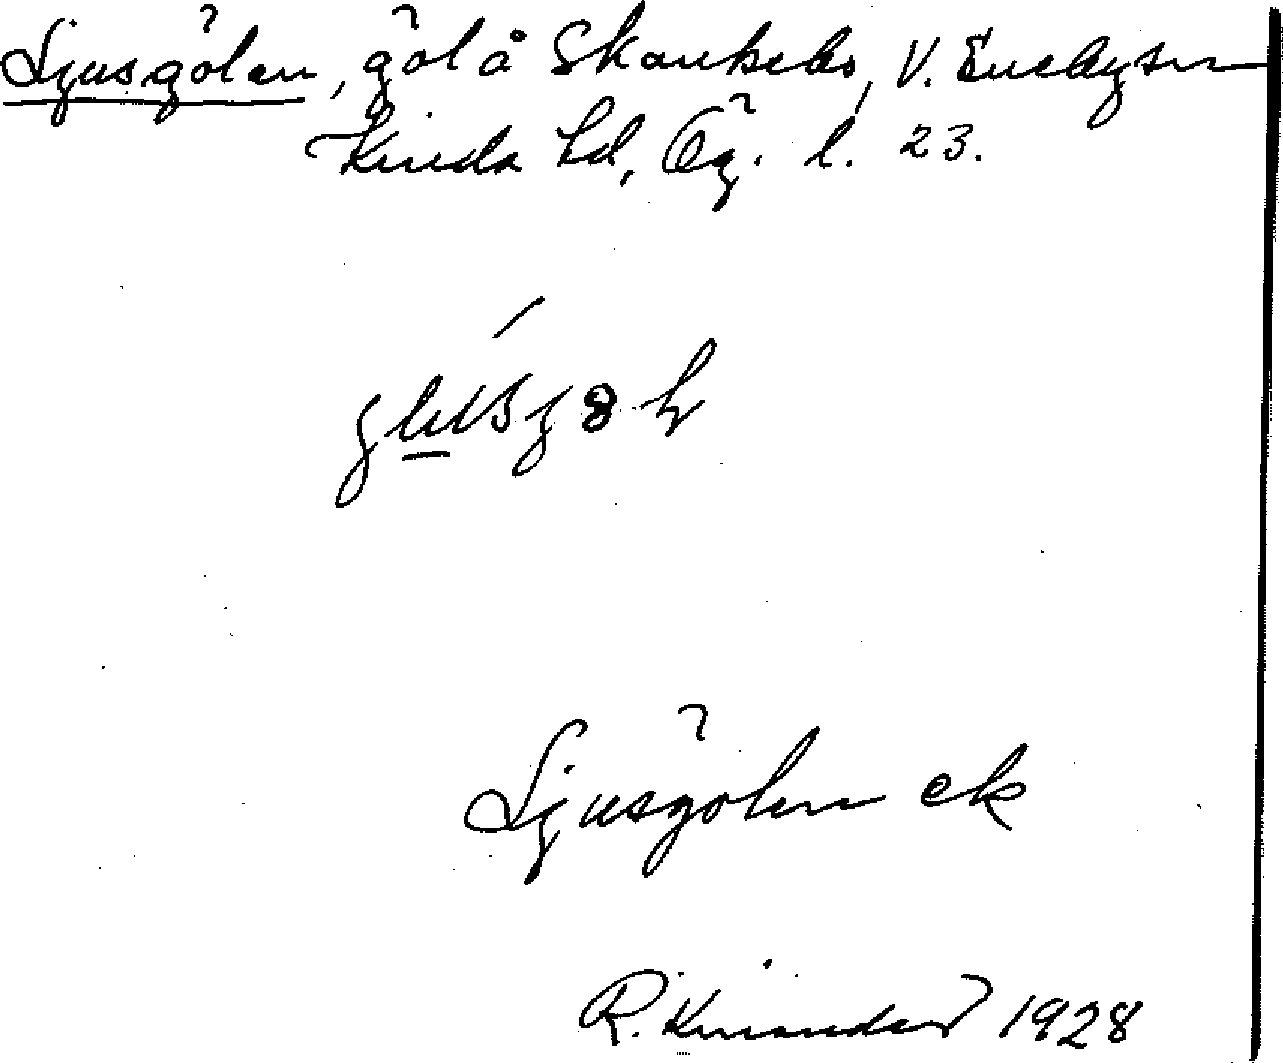 Ljusgölen, göl å Skankebo, V. Eneby sn
Kinda hd, Ög. l. 23.
Ljusgölen ek
R. Kinander 1928